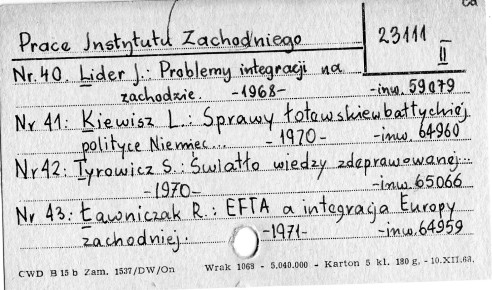 Prace Instytutu Zachodniego
23111
II
Nr. 40. Lider J.: Problemy integracji na
zachodzie. -1968- -inw. 59079
Nr 41: Kiewisz L.: Sprawy łotewskie w bałtyckiej
polityce Niemiec... -1970- -inw. 64960
Nr 42: Tyrowicz S.: Światło wiedzy zdeprawowanej...
-1970- -inw. 65066
Nr 43: Ławniczak R.: EFTA a integracja Europy
zachodniej. -1971- -inw. 64959
CWD B 15 b Zam. 1537/DW/On Wrak 1069 - 5.040.000 - Karton 5 kl. 180 g. - 10.XII.68.